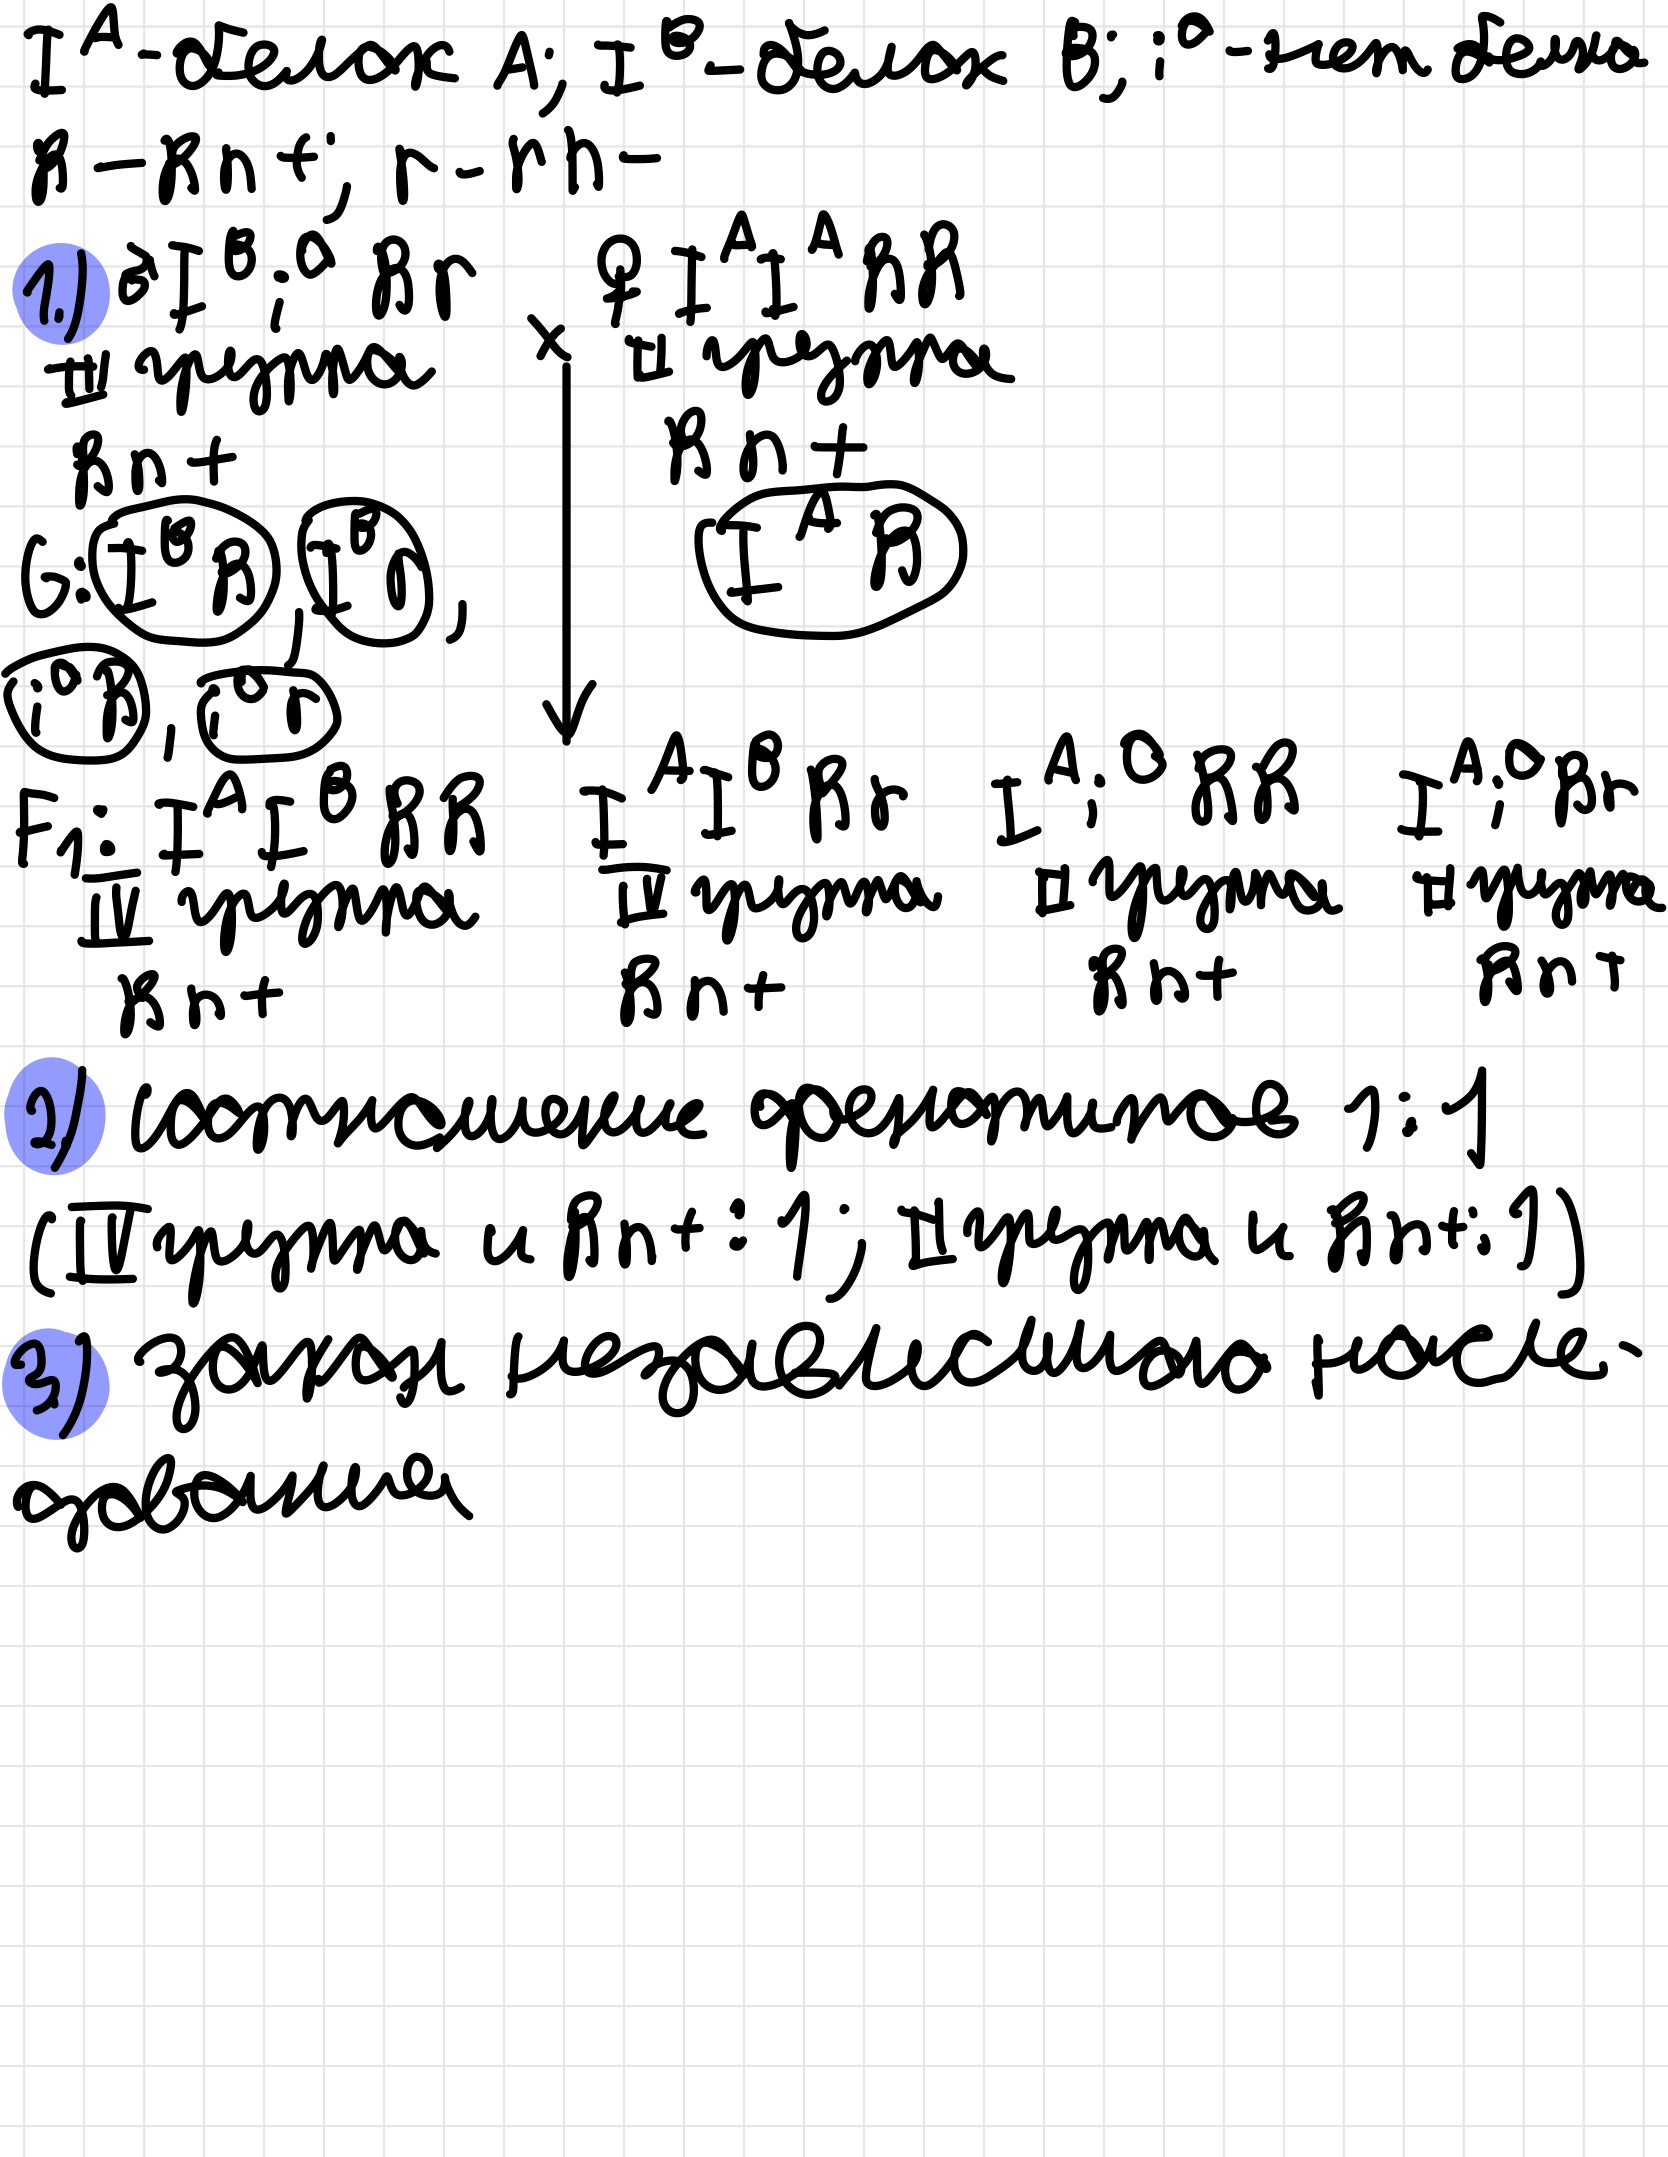 I^A - белок A; I^B - белок B; i^0 - нет белка
R - Rh+; r - rh-
1.) ♂ I^B i^0 Rr × ♀ I^A I^A RR
III группа II группа
Rh+ Rh+
G: I^B R, I^B r, I^A R
i^0 R, i^0 r
F1: I^A I^B RR I^A I^B Rr I^A i^0 RR I^A i^0 Rr
IV группа IV группа II группа II группа
Rh+ Rh+ Rh+ Rh+
2) соотношение фенотипов 1:1
(IV группа и Rh+ : 1; II группа и Rh+ : 1)
3) закон независимого насле-
дования